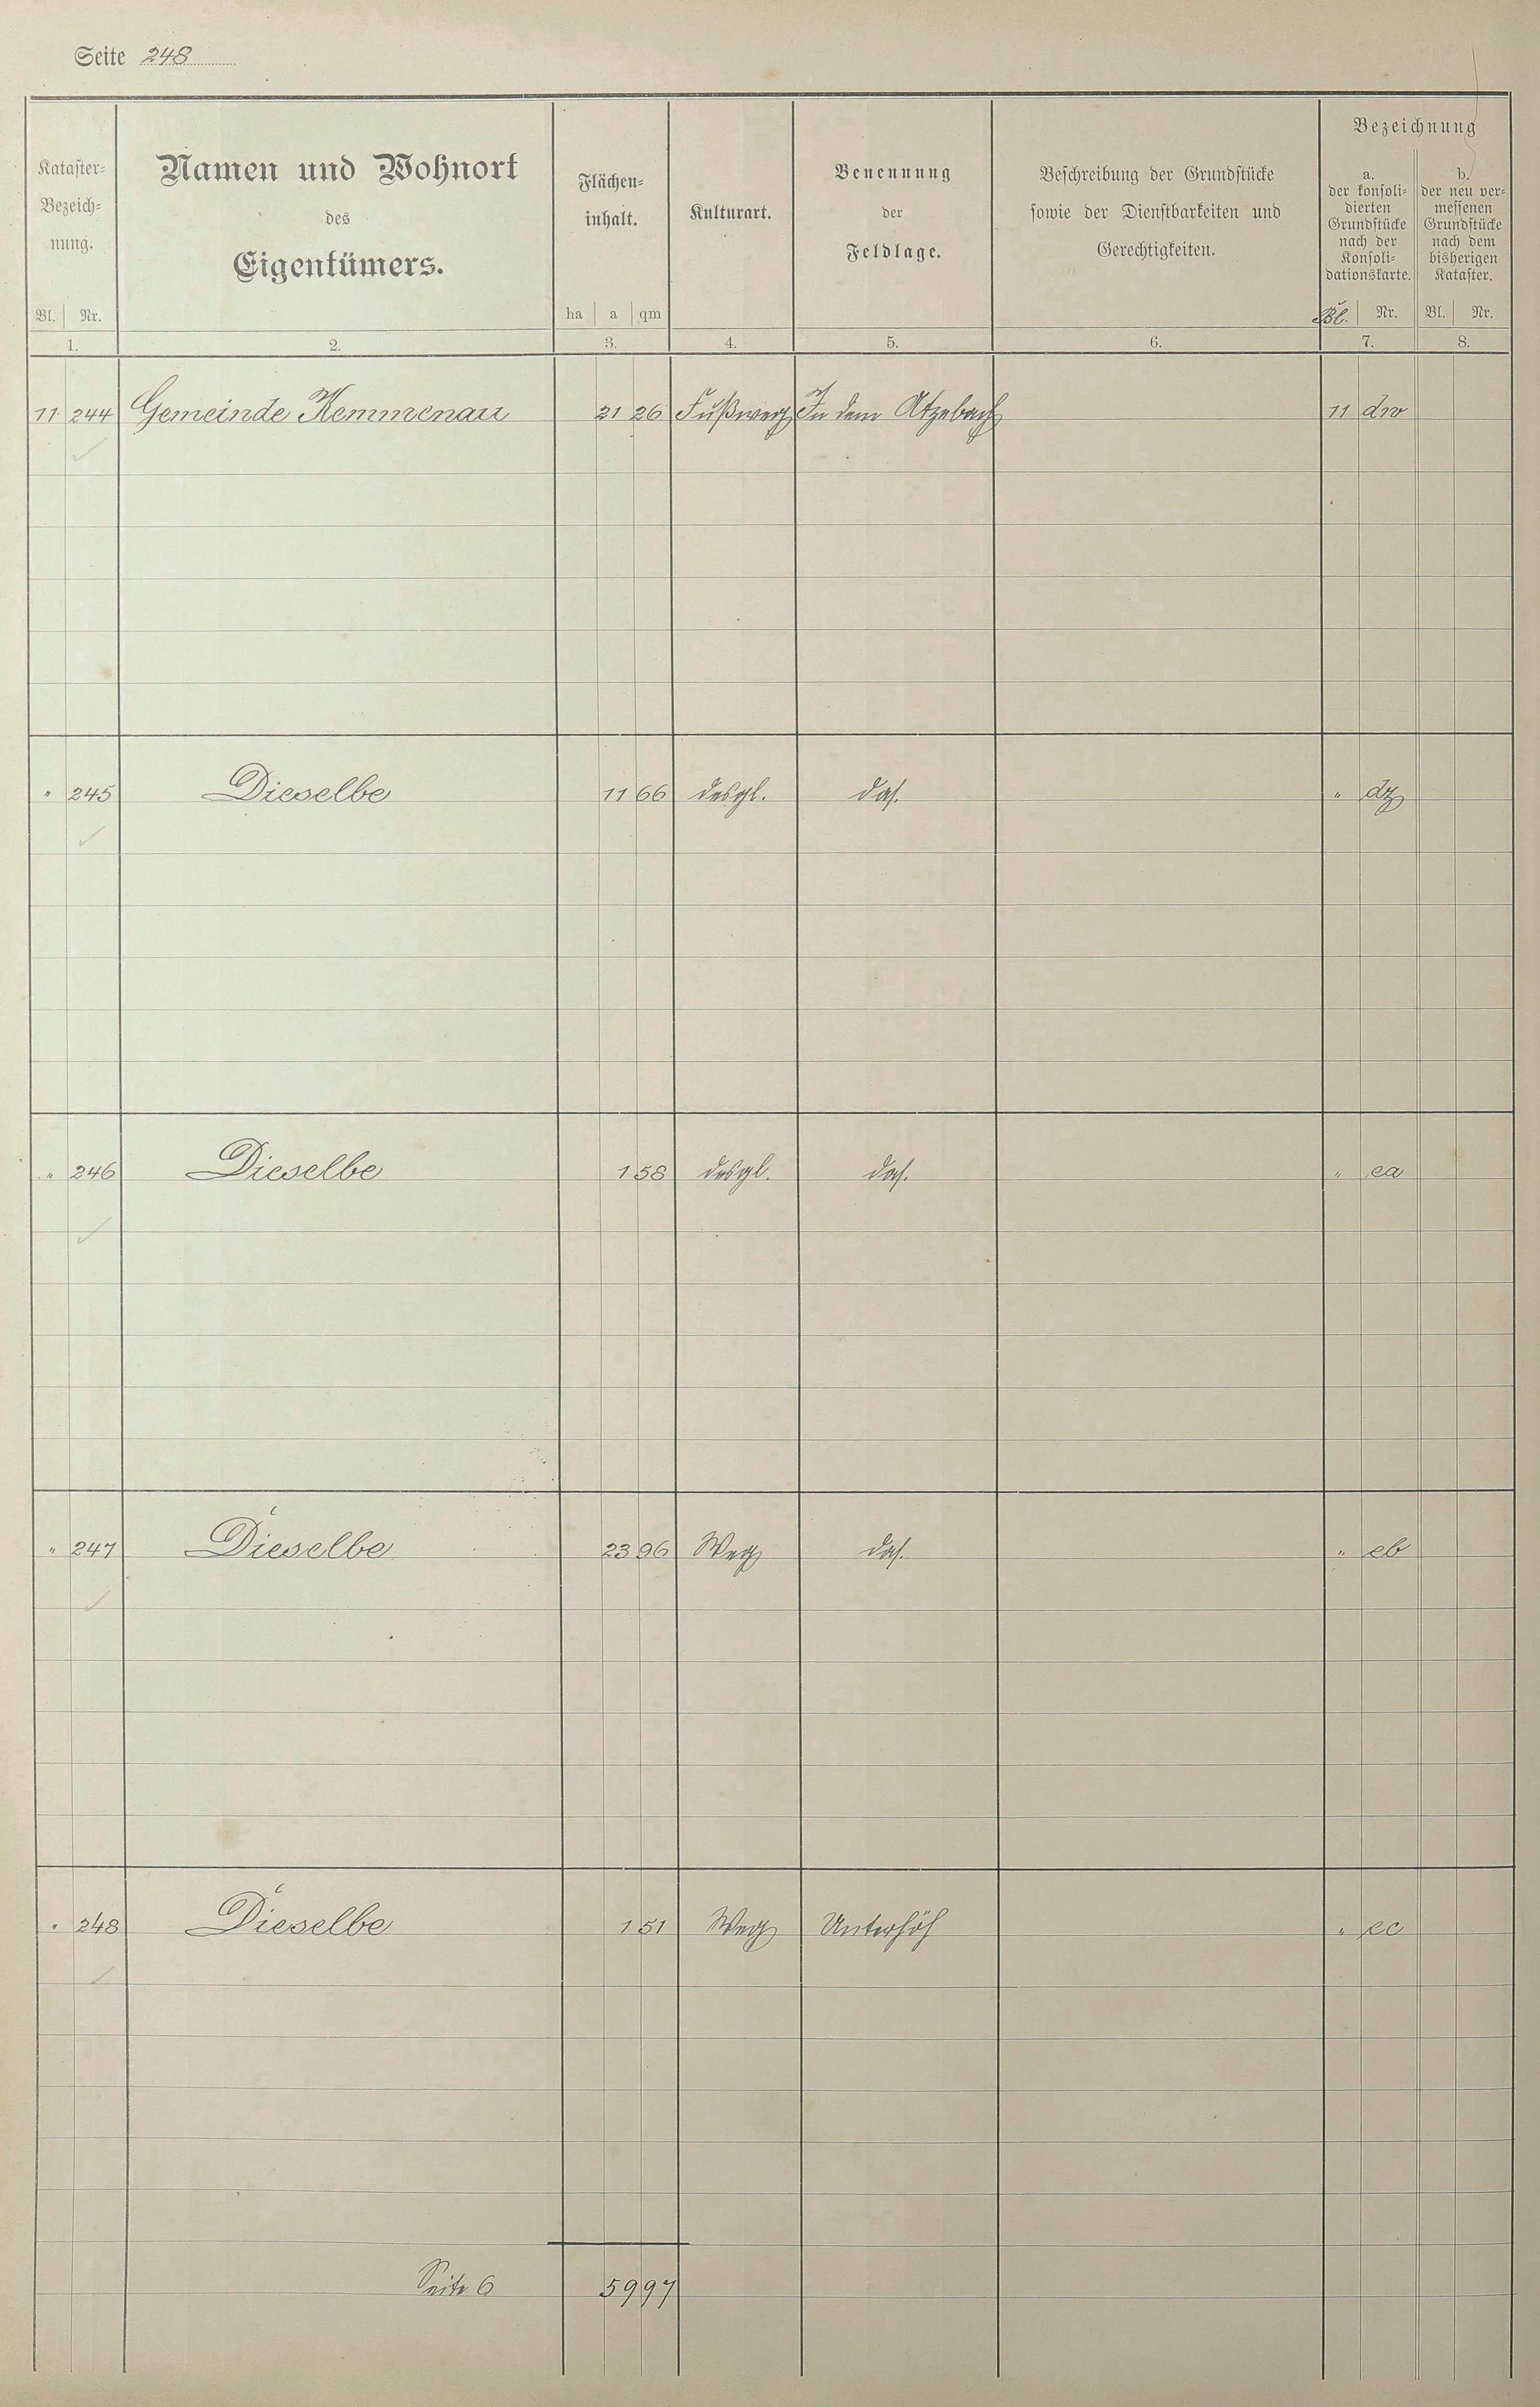 Seite 248
Kataster-
Bezeich-
nung.
Bl. Nr.
1.
Namen und Wohnort
des
Eigentümers.
2.
Flächen-
inhalt.
ha a qm
3.
Kulturart.
4.
Benennung
der
Feldlage.
5.
Beschreibung der Grundstücke
sowie der Dienstbarkeiten und
Gerechtigkeiten.
6.
Bezeichnung
a.
der konsoli-
dierten
Grundstücke
nach der
Konsoli-
dationskarte.
Bl. Nr.
7.
b.
der neu ver-
messenen
Grundstücke
nach dem
bisherigen
Kataster.
Bl. Nr.
8.
11 244 Gemeinde Kemmenau 21 26 Fußweg In dem Atzebach 11 dw
" 245 Dieselbe 11 66 desgl. das. " dz
" 246 Dieselbe 1 58 desgl. das. " ea
" 247 Dieselbe 23 96 Weg das. " eb
" 248 Dieselbe 1 51 Weg Unterhöh " ec
Seite 6 59 97